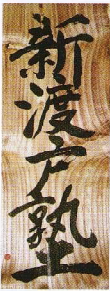 新渡戸塾